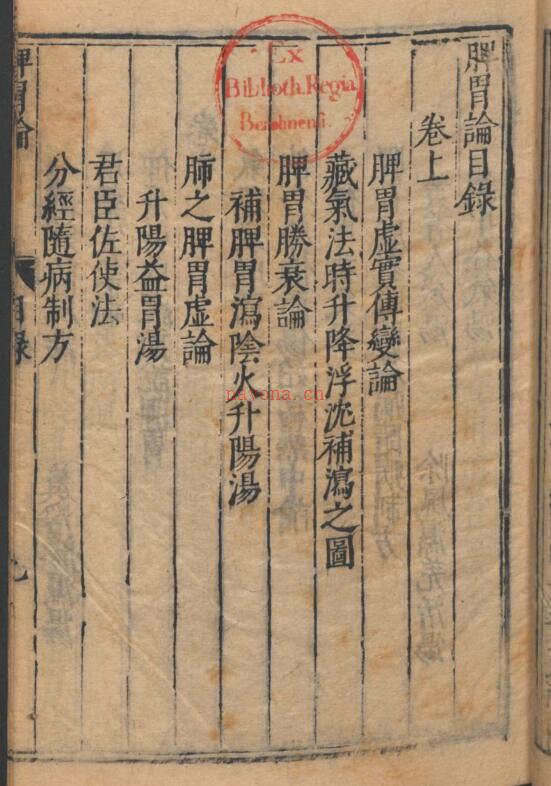 脾胃論目錄
卷上
脾胃虛實傳變論
藏氣法時升降浮沈補瀉之圖
脾胃勝衰論
補脾胃瀉陰火升陽湯
肺之脾胃虛論
升陽益胃湯
君臣佐使法
分經隨病制方
脾胃論
目錄
Ex
Biblioth. Regia
Berolinensi.
nayona.cn